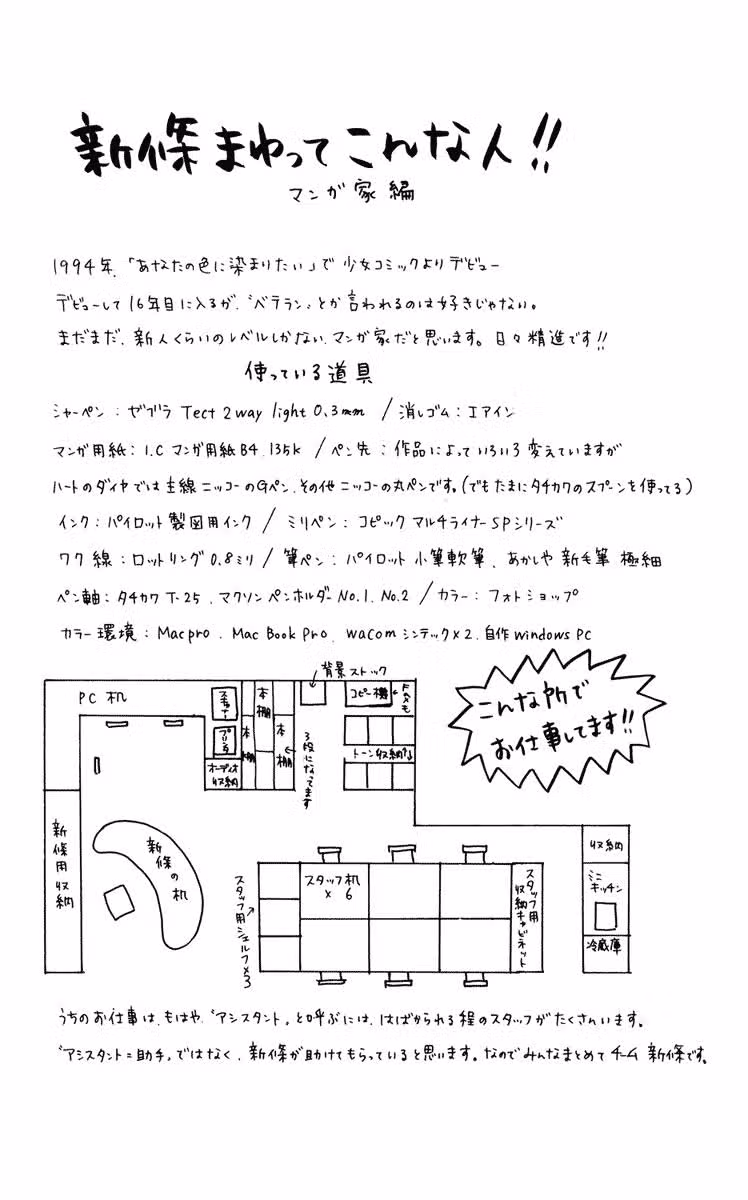 新條まゆってこんな人!!
マンガ家編
1994年、「あなたの色に染まりたい」で少女コミックよりデビュー
デビューして16年目に入るが、〝ベテラン〟とか言われるのは好きじゃない。
まだまだ、新人くらいのレベルしかない、マンガ家だと思います。日々精進です!!
使っている道具
シャーペン：ゼブラ Tect 2way light 0.3mm / 消しゴム：エアイン
マンガ用紙：I.C マンガ用紙B4.135k / ペン先：作品によっていろいろ変えていますが
ハートのダイヤでは主線ニッコーのGペン、その他ニッコーの丸ペンです。(でもたまにタチカワのスプーンを使ってる)
インク：パイロット製図用インク / ミリペン：コピックマルチライナーSPシリーズ
ワク線：ロットリング0.8ミリ / 筆ペン：パイロット小筆軟筆、あかしや新毛筆 極細
ペン軸：タチカワT-25、マクソンペンホルダーNo.1、No.2 / カラー：フォトショップ
カラー環境：Macpro、Mac Book Pro、wacomシンテック×2、自作windows PC
背景ストック
PC机
スキャナー
本棚
コピー機
FAXも
こんな所で
お仕事してます!!
プリンタ
本棚
本棚
オーディオ収納
3段になってます
トーン収納
新條用収納
新條の机
スタッフ用シェルフ×3
スタッフ机
×6
スタッフ用
収納キャビネット
収納
ミニ
キッチン
冷蔵庫
うちのお仕事は、もはや、〝アシスタント〟と呼ぶには、はばかられる程のスタッフがたくさんいます。
〝アシスタント=助手〟ではなく、新條が助けてもらっていると思います。なのでみんなまとめてチーム新條です。